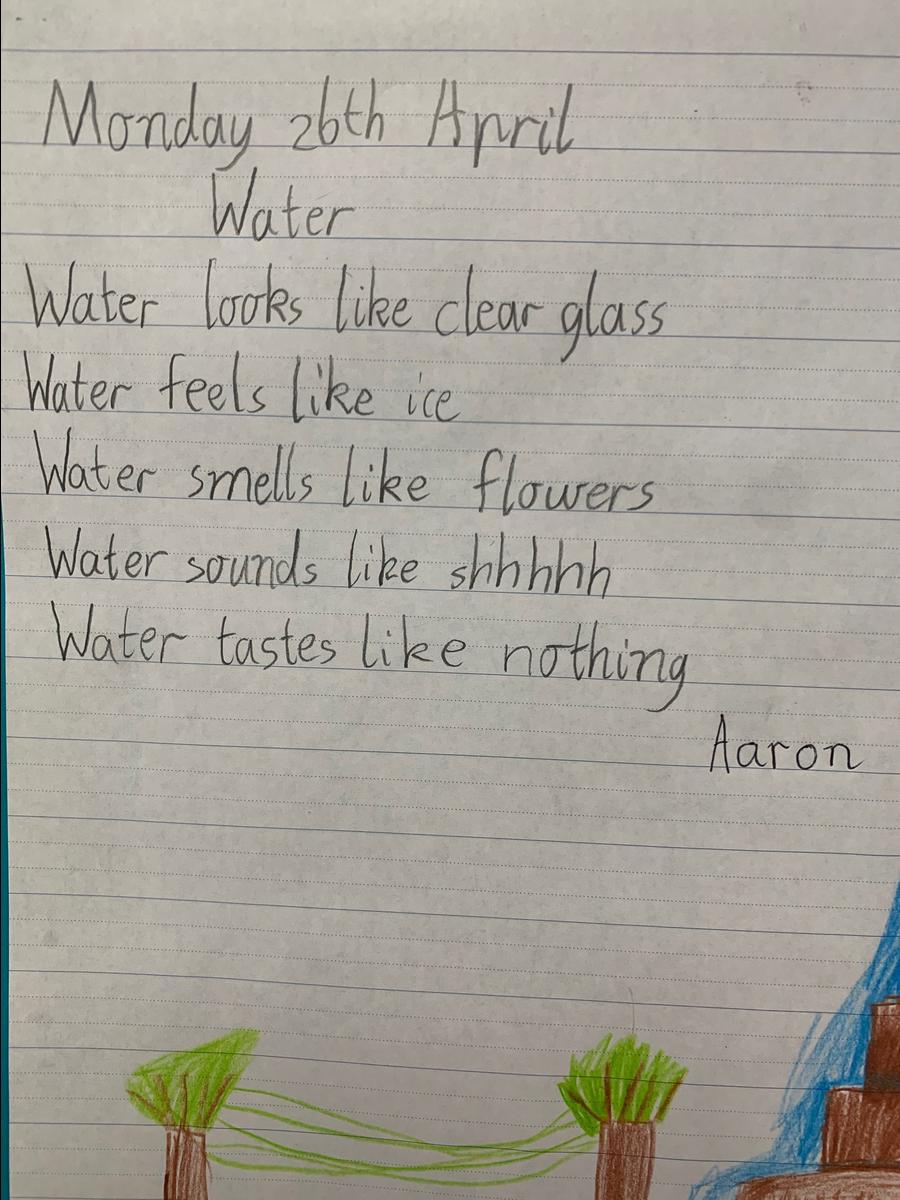 Monday 26th April
Water
Water looks like clear glass
Water feels like ice
Water smells like flowers
Water sounds like shhhhh
Water tastes like nothing
Aaron